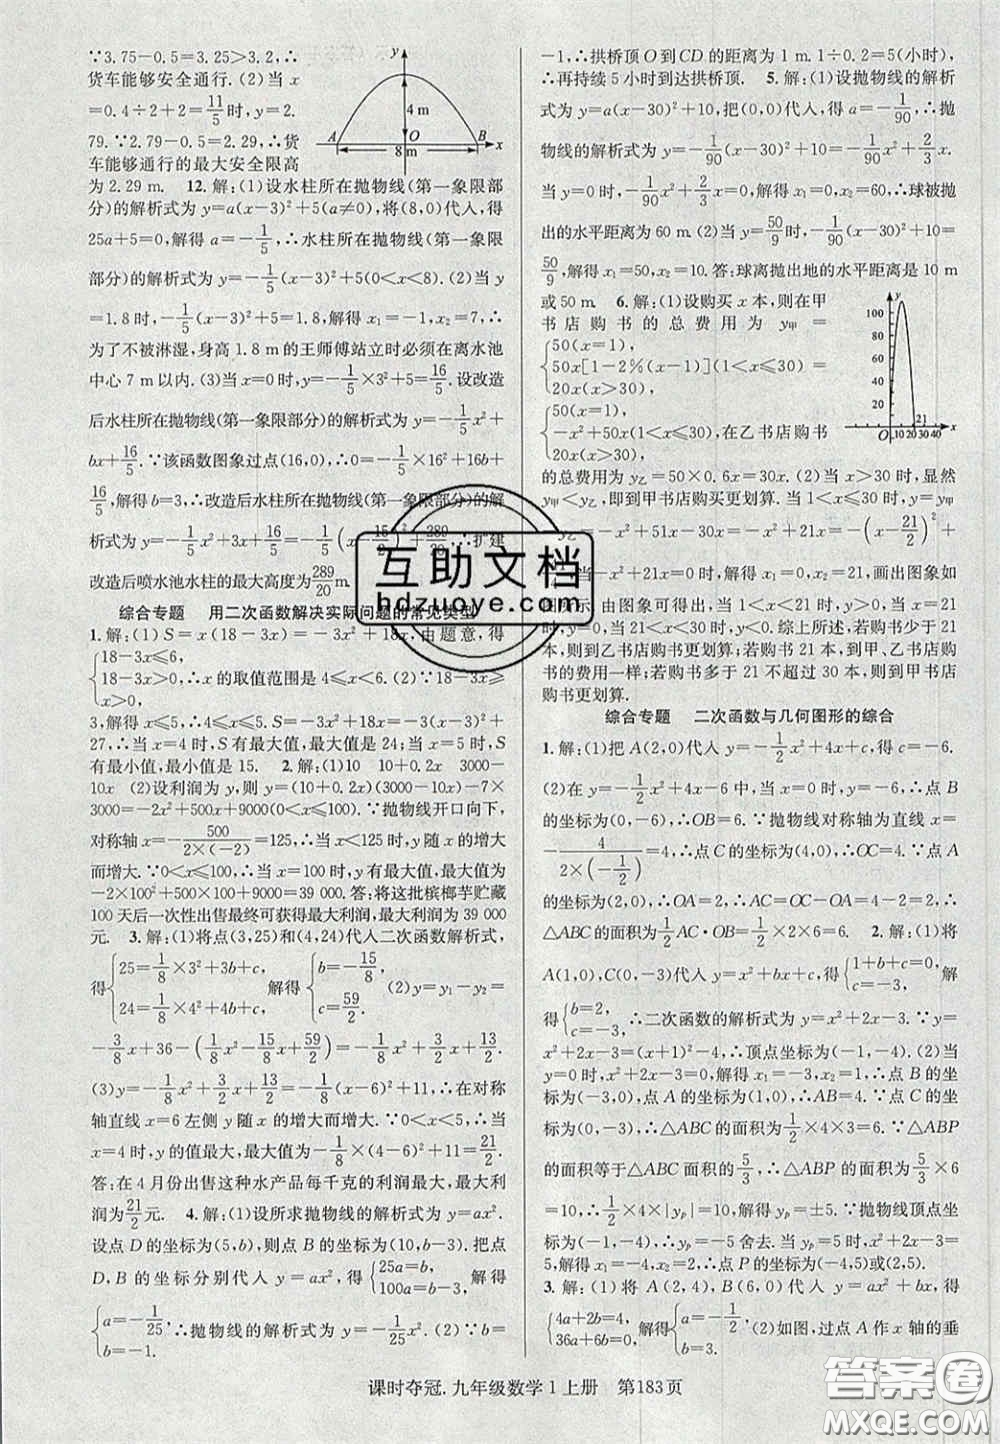 ∵3.75-0.5=3.25>3.2,∴
货车能够安全通行.(2)当 x
=0.4÷2+2=11/5时,y=2.
79.∵2.79-0.5=2.29,∴货
车能够通行的最大安全限高
为 2.29 m. 12.解:(1)设水柱所在抛物线(第一象限部
分)的解析式为 y=a(x-3)²+5(a≠0),将(8,0)代人,得
25a+5=0,解得 a=-1/5,∴水柱所在抛物线(第一象限
部分)的解析式为 y=-1/5(x-3)²+5(0<x<8).(2)当 y
=1.8时,-1/5(x-3)²+5=1.8,解得 x₁=-1,x₂=7,∴
为了不被淋湿,身高 1.8 m 的王师傅站立时必须在离水池
中心 7 m 以内.(3)当 x=0时,y=-1/5×3²+5=16/5.设改造
后水柱所在抛物线(第一象限部分)的解析式为 y=-1/5x²+
bx+16/5.∵该函数图象过点(16,0),∴0=-1/5×16²+16b+
16/5,解得 b=3,∴改造后水柱所在抛物线(第一象限部分)的解
析式为 y=-1/5x²+3x+16/5=-1/5(x-15/2)²+289/20,∴扩建
改造后喷水池水柱的最大高度为289/20 m.
综合专题 用二次函数解决实际问题的常见类型
1.解:(1)S=x(18-3x)=-3x²+18x.由题意,得
{18-3x≤6,
18-3x>0,∴x 的取值范围是 4≤x<6.(2)∵{
3,解得 x≤5,∴4≤x≤5.∵S=-3x²+18x=-3(x-3)²+
27,∴当 x=4 时,S 有最大值,最大值是 24;当 x=5 时,S
有最小值,最小值是 15. 2.解:(1)10 10+0.2x 3000-
10x (2)设利润为 y,则 y=(10+0.2x)(3000-10x)-7×
3000=-2x²+500x+9000(0<x≤100).∵抛物线开口向下,
对称轴 x=-500/2×(-2)=125,∴当 x<125 时,y 随 x 的增大
而增大.∵0<x≤100,∴当 x=100 时,y 有最大值,最大值为
-2×100²+500×100+9000=39 000.答:将这批槟榔芋贮藏
100 天后一次性出售最终可获得最大利润,最大利润为 39 000
元. 3.解:(1)将点(3,25)和(4,24)代人二次函数解析式,
得{25=1/8×3²+3b+c, 24=1/8×4²+4b+c, 解得{b=-15/8, c=59/2. (2)y=y₁-y₂=
-3/8x+36-(1/8x²-15/8x+59/2)=-1/8x²+3/2x+13/2.
(3)y=-1/8x²+3/2x+13/2=-1/8(x-6)²+11,∴在对称
轴直线 x=6 左侧 y 随 x 的增大而增大.∵0<x<5,∴当
x=4 时,y 有最大值,最大值为-1/8×(4-6)²+11=21/2.
答:在 4 月份出售这种水产品每千克的利润最大,最大利
润为21/2元. 4.解:(1)设所求抛物线的解析式为 y=ax².
设点 D 的坐标为(5,b),则点 B 的坐标为(10,b-3).把点
D,B 的坐标分别代人 y=ax²,得{25a=b, 100a=b-3, 解得
{a=-1/25, b=-1. ∴抛物线的解析式为 y=-1/25x².(2)∵b=
A
O
B
x
y
4 m
8 m
-1,∴拱桥顶 O 到 CD 的距离为 1 m.1÷0.2=5(小时),
∴再持续 5 小时到达拱桥顶. 5.解:(1)设抛物线的解析
式为 y=a(x-30)²+10,把(0,0)代人,得 a=-1/90,∴抛
物线的解析式为 y=-1/90(x-30)²+10=-1/90x²+2/3x.
当 y=0 时,-1/90x²+2/3x=0,解得 x₁=0,x₂=60,∴球被抛
出的水平距离为 60 m.(2)当 y=50/9时,-1/90(x-30)²+10=
50/9,解得 x₁=50,x₂=10.答:球离抛出地的水平距离是 10 m
或 50 m. 6.解:(1)设购买 x 本,则在甲
书店购书的总费用为 y甲=
{50(x=1),
50x[1-2%(x-1)](1<x≤30),
20x(x>30)
{50(x=1),
-x²+51x(1<x≤30),在乙书店购书
20x(x>30),
的总费用为 y乙=50×0.6x=30x.(2)当 x>30 时,显然
y甲<y乙,即到甲书店购买更划算.当 1<x≤30 时,y=y甲
-y乙=-x²+51x-30x=-x²+21x=-(x-21/2)²+
画出图象如
图所示,由图象可得出,当 x=21
时,y=0.综上所述,若购书少于 21
本,则到乙书店购买更划算;若购书 21 本,到甲、乙书店购
书的费用一样;若购书多于 21 不超过 30 本,则到甲书店
购书更划算.
y
100
80
60
40
20
O
10 20 30 40
21
x
综合专题 二次函数与几何图形的综合
1.解:(1)把 A(2,0)代人 y=-1/2x²+4x+c,得 c=-6.
(2)在 y=-1/2x²+4x-6 中,当 x=0 时,y=-6,∴点 B
的坐标为(0,-6),∴OB=6.∵抛物线对称轴为直线 x=
-4/2×(-1/2)=4,∴点 C 的坐标为(4,0),∴OC=4.∵点 A
的坐标为(2,0),∴OA=2,∴AC=OC-OA=4-2=2,∴
△ABC 的面积为1/2AC·OB=1/2×2×6=6. 2.解:(1)将
A(1,0),C(0,-3)代人 y=x²+bx+c,得{1+b+c=0, c=-3, 解
得{b=2, c=-3, ∴二次函数的解析式为 y=x²+2x-3.∵y=
x²+2x-3=(x+1)²-4,∴顶点坐标为(-1,-4).(2)当
y=0时,x²+2x-3=0,解得 x₁=-3,x₂=1,∴点 B 的坐标
为(-3,0),点 A 的坐标为(1,0),∴AB=4.∵点 C 的坐标为
(0,-3),∴△ABC 的面积为1/2×4×3=6.∵△ABP 的面积
的面积等于△ABC 面积的5/3,∴△ABP 的面积为5/3×6
=10,∴1/2×4×|yₚ|=10,解得 yₚ=±5.∵抛物线顶点为
(-1,-4),∴yₚ=-5 舍去.∴当 yₚ=5 时,x²+2x-3=5,
解得 x₁=-4,x₂=2,∴点 P 的坐标为(-4,5)或(2,5).
3.解:(1)将 A(2,4),B(6,0)代人 y=ax²+bx,得
{4a+2b=4, 36a+6b=0, 解得{a=-1/2, b=3. (2)如图,过点 A 作 x 轴的垂
互助文档
hdzuoye.com
课时夺冠.九年级数学 1 上册 第183页
答案圈
MXQE.COM